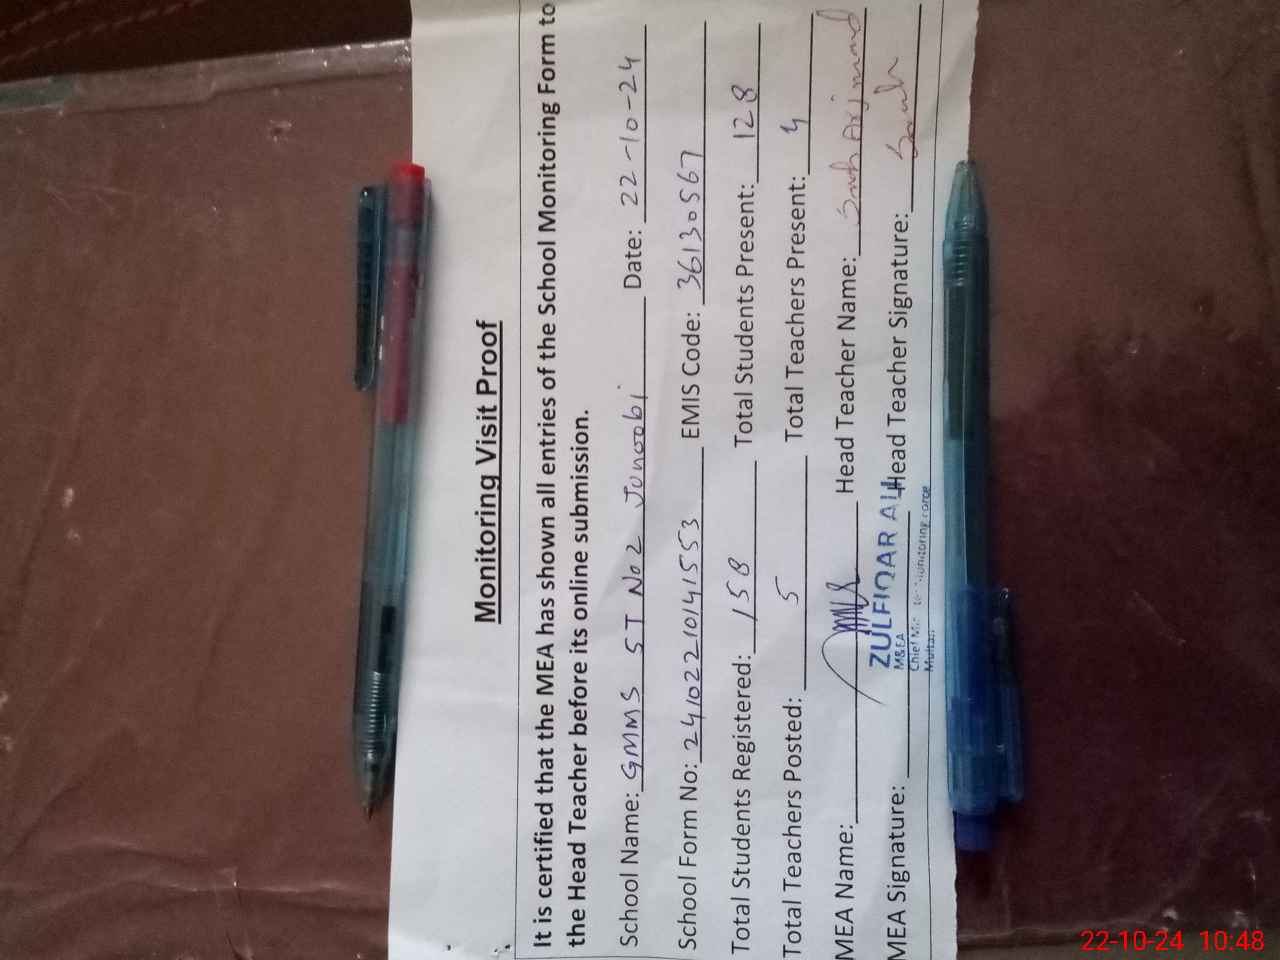 Monitoring Visit Proof
It is certified that the MEA has shown all entries of the School Monitoring Form to
the Head Teacher before its online submission.
School Name: GMMS ST No 2 Junoobi Date: 22-10-24
School Form No: 24102210141553 EMIS Code: 36130567
Total Students Registered: 158 Total Students Present: 128
Total Teachers Posted: 5 Total Teachers Present: 4
MEA Name: Head Teacher Name: Arjmand
ZULFIQAR ALI
MEA Signature: Head Teacher Signature:
M&EA
Chief Monitoring Force
Multan
22-10-24 10:48